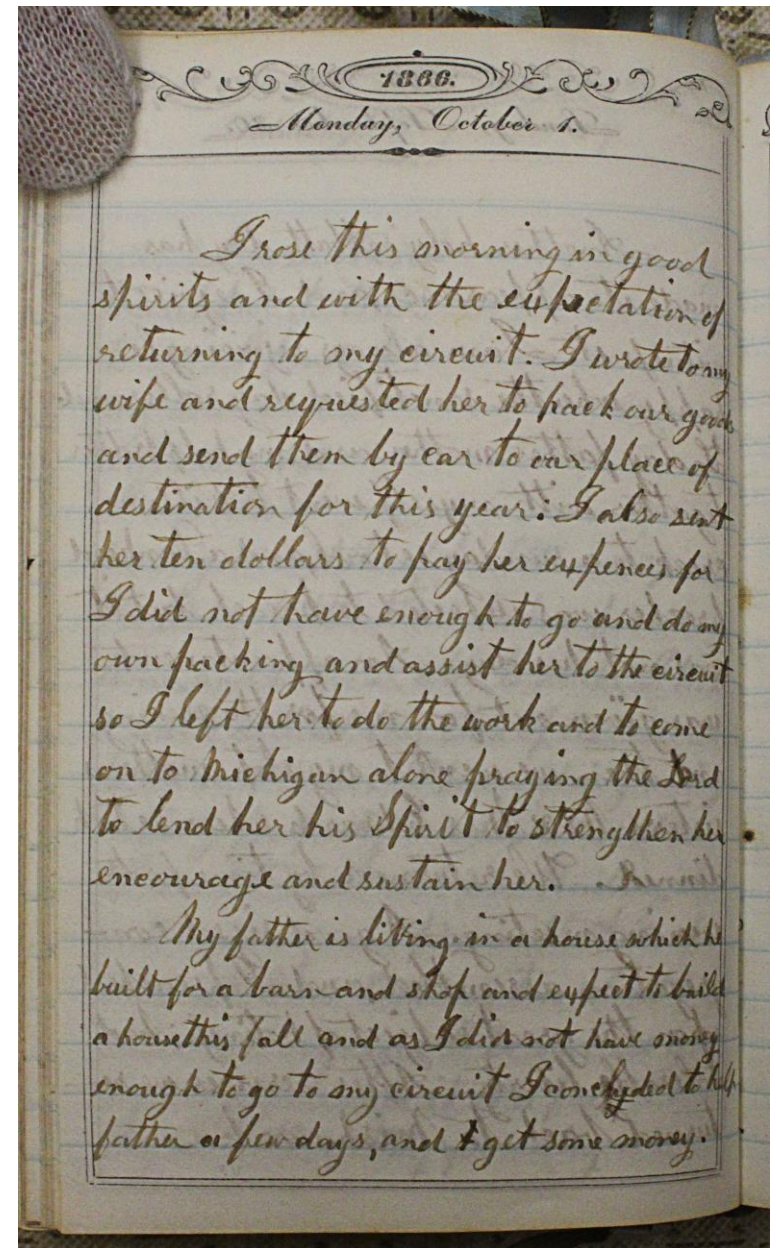 1866.
Monday, October 1.
I rose this morning in good
spirits and with the expectation of
returning to my circuit. I wrote to my
wife and requested her to pack our goods
and send them by car to our place of
destination for this year: I also sent
her ten dollars to pay her expences for
I did not have enough to go and do my
own packing and assist her to the circuit
so I left her to do the work and to come
on to Michigan alone praying the Lord
to lend her his Spirit to strengthen her
encourage and sustain her.
My father is living in a house which he
built for a barn and shop and expect to build
a house this fall and as I did not have money
enough to go to my circuit I concluded to help
father a few days, and get some money.